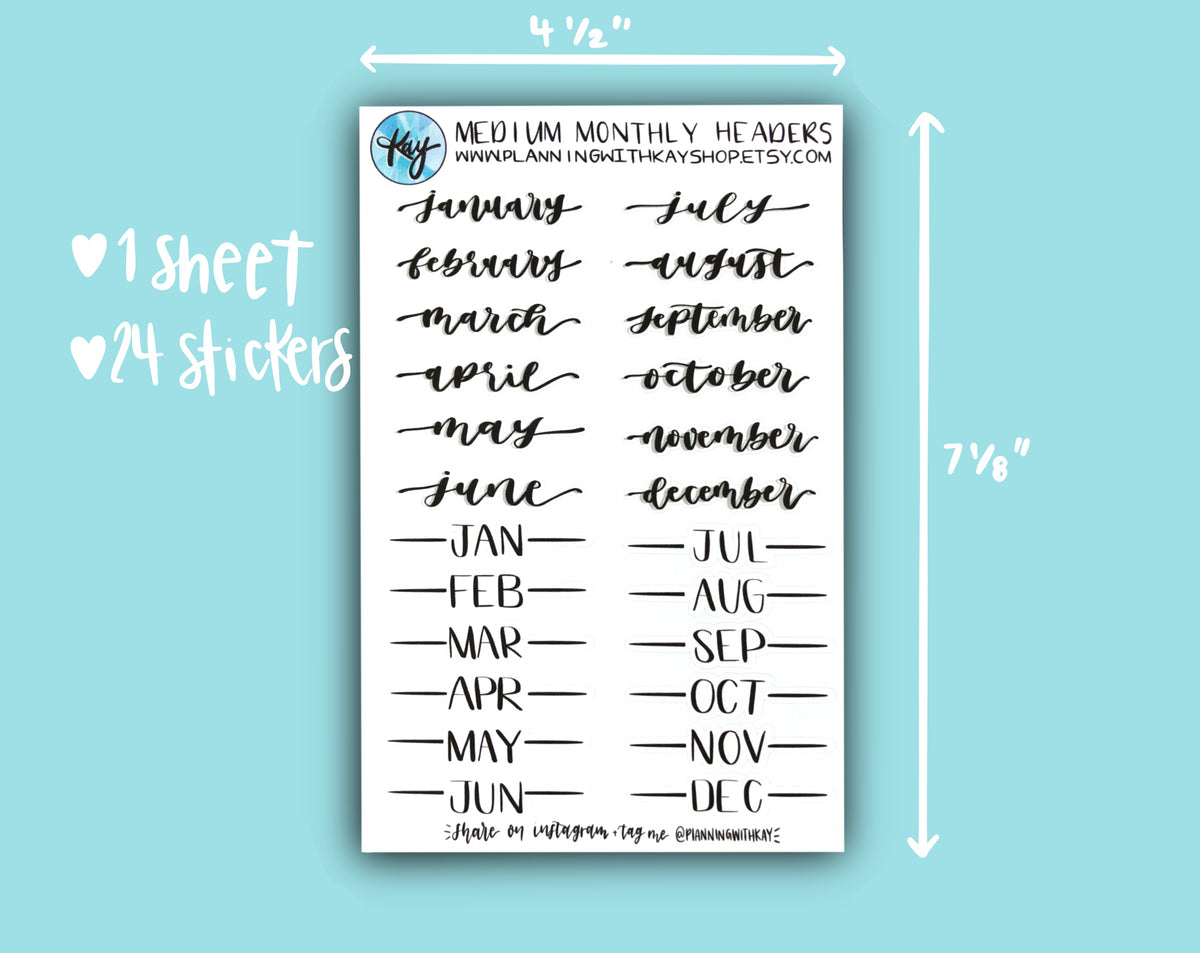 4 1/2"
Kay
MEDIUM MONTHLY HEADERS
WWW.PLANNINGWITHKAYSHOP.ETSY.COM
♥1 sheet
♥24 stickers
7 1/8"
january
february
march
april
may
june
july
august
september
october
november
december
JAN
FEB
MAR
APR
MAY
JUN
JUL
AUG
SEP
OCT
NOV
DEC
share on instagram + tag me @PLANNINGWITHKAY